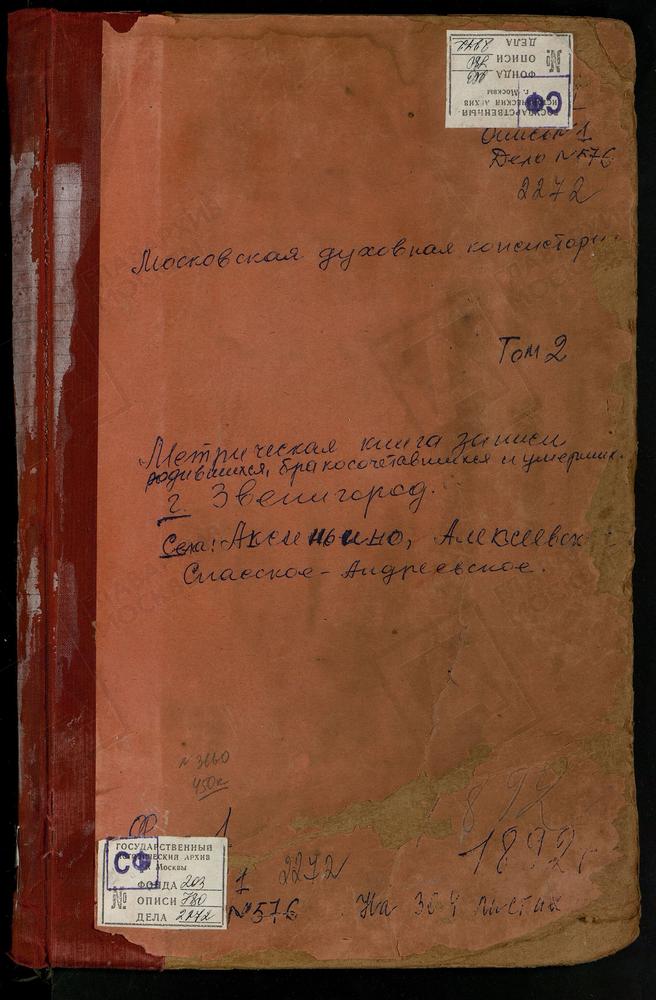 ГОСУДАРСТВЕННЫЙ
ИСТОРИЧЕСКИЙ АРХИВ
г. Москвы
СФ
ФОНДА 203
№ ОПИСИ 780
ДЕЛА 2272
Опись №1
Дело №576
2272
Московская духовная консистори
Том 2
Метрическая книга записи
родившихся, бракосочетавшихся и умерших.
г. Звенигород.
Села: Аксиньино, Алексеевск
Спасское-Андреевское.
450к
1892
1892 г
1
ГОСУДАРСТВЕННЫЙ
ИСТОРИЧЕСКИЙ АРХИВ
г. Москвы
СФ
ФОНДА 203
№ ОПИСИ 780
ДЕЛА 2272
1 2272
№576 На листах